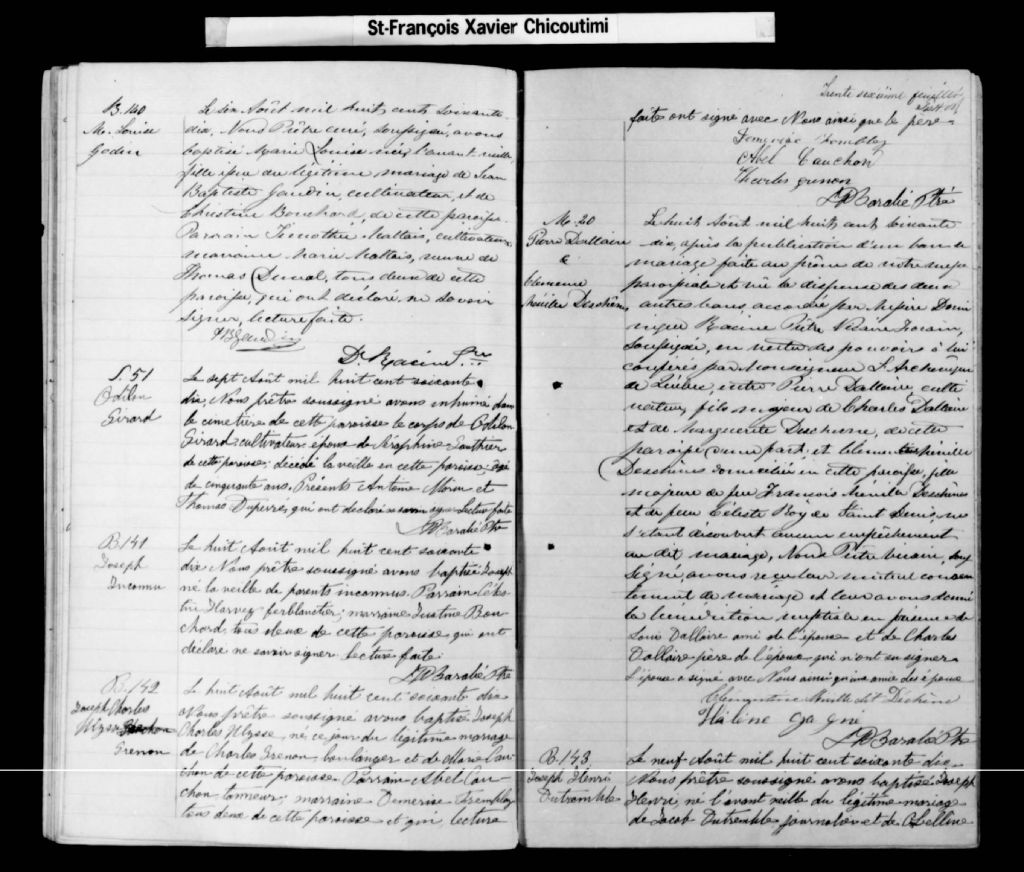 St-François Xavier Chicoutimi
B. 140
M. Louise
Godin
Le six Août mil huit cent soixante
dix, Nous Prêtre curé, soussigné, avons
baptisé Marie Louise née l'avant veille,
fille issue du légitime mariage de Jean
Baptiste Gaudin, cultivateur, et de
Christine Bouchard, de cette paroisse.
Parrain Timothée Maltais, cultivateur,
marraine Marie Maltais, veuve de
Thomas Duval, tous deux de cette
paroisse, qui ont déclaré ne savoir
signer, lecture faite.
JBGaudin
D. Racine Ptre
S. 51
Odilon
Girard
Le sept Août mil huit cent soixante
dix, Nous prêtre soussigné avons inhumé dans
le cimetière de cette paroisse le corps de Odilon
Girard cultivateur époux de Séraphine Gauthier
de cette paroisse, décédé la veille en cette paroisse, âgé
de cinquante ans. Présents Antoine Morin et
Thomas Duperré, qui ont déclaré ne savoir signer. Lecture faite
Baralié Ptre
B. 141
Joseph
Inconnu
Le huit Août mil huit cent soixante
dix Nous prêtre soussigné avons baptisé Joseph
né la veille de parents inconnus. Parrain Céles
tin Harvey ferblantier; marraine Justine Bou
chard, tous deux de cette paroisse qui ont
déclaré ne savoir signer. lecture faite.
Baralié Ptre
B. 142
Joseph Charles
Ulysse
Grenon
Le huit Août mil huit cent soixante dix
Nous prêtre soussigné avons baptisé Joseph
Charles Ulysse, né ce jour du légitime mariage
de Charles Grenon boulanger et de Marie Cau
chon de cette paroisse. Parrain Abel Cau
chon, tanneur; marraine Démerise Tremblay
tous deux de cette paroisse et qui, lecture
Trente sixième feuillet
faite ont signé avec Nous ainsi que le père
Tremblay
Abel Cauchon
Charles grenon
Baralié Ptre
M. 20
Pierre Dallaire
&
Clémence
Miville Deschênes
Le huit Août mil huit cent soixante
dix, après la publication d'un ban de
mariage faite au prône de notre messe
paroissiale et vu la dispense des deux
autres bans accordée par Messire Domi
nique Racine Prêtre Vicaire Forain,
soussigné, en vertu des pouvoirs à lui
conférés par Monseigneur L'Archevêque
de Québec, entre Pierre Dallaire, culti
vateur, fils majeur de Charles Dallaire
et de Marguerite Deschesne, de cette
paroisse d'une part; et Clémentine Miville
Deschênes domiciliée en cette paroisse, fille
majeure de feu François Miville Deschênes
et de feue Céleste Roy de Saint Denis, ne
s'étant découvert aucun empêchement
au dit mariage, Nous Prêtre vicaire, sous
signé, avons reçu leur mutuel consen
tement de mariage et leur avons donné
la bénédiction nuptiale en présence de
Louis Dallaire ami de l'époux et de Charles
Dallaire père de l'époux qui n'ont su signer.
L'épouse a signé avec Nous ainsi qu'une amie des époux
Clémentine Miville dit Dechène
Héléne Gagné
Baralié Ptre
B. 143
Joseph Henri
Dutremble
Le neuf Août mil huit cent soixante dix
Nous prêtre soussigné avons baptisé Joseph
Henri, né l'avant veille du légitime mariage
de Jacob Dutremble journalier et de Obeline